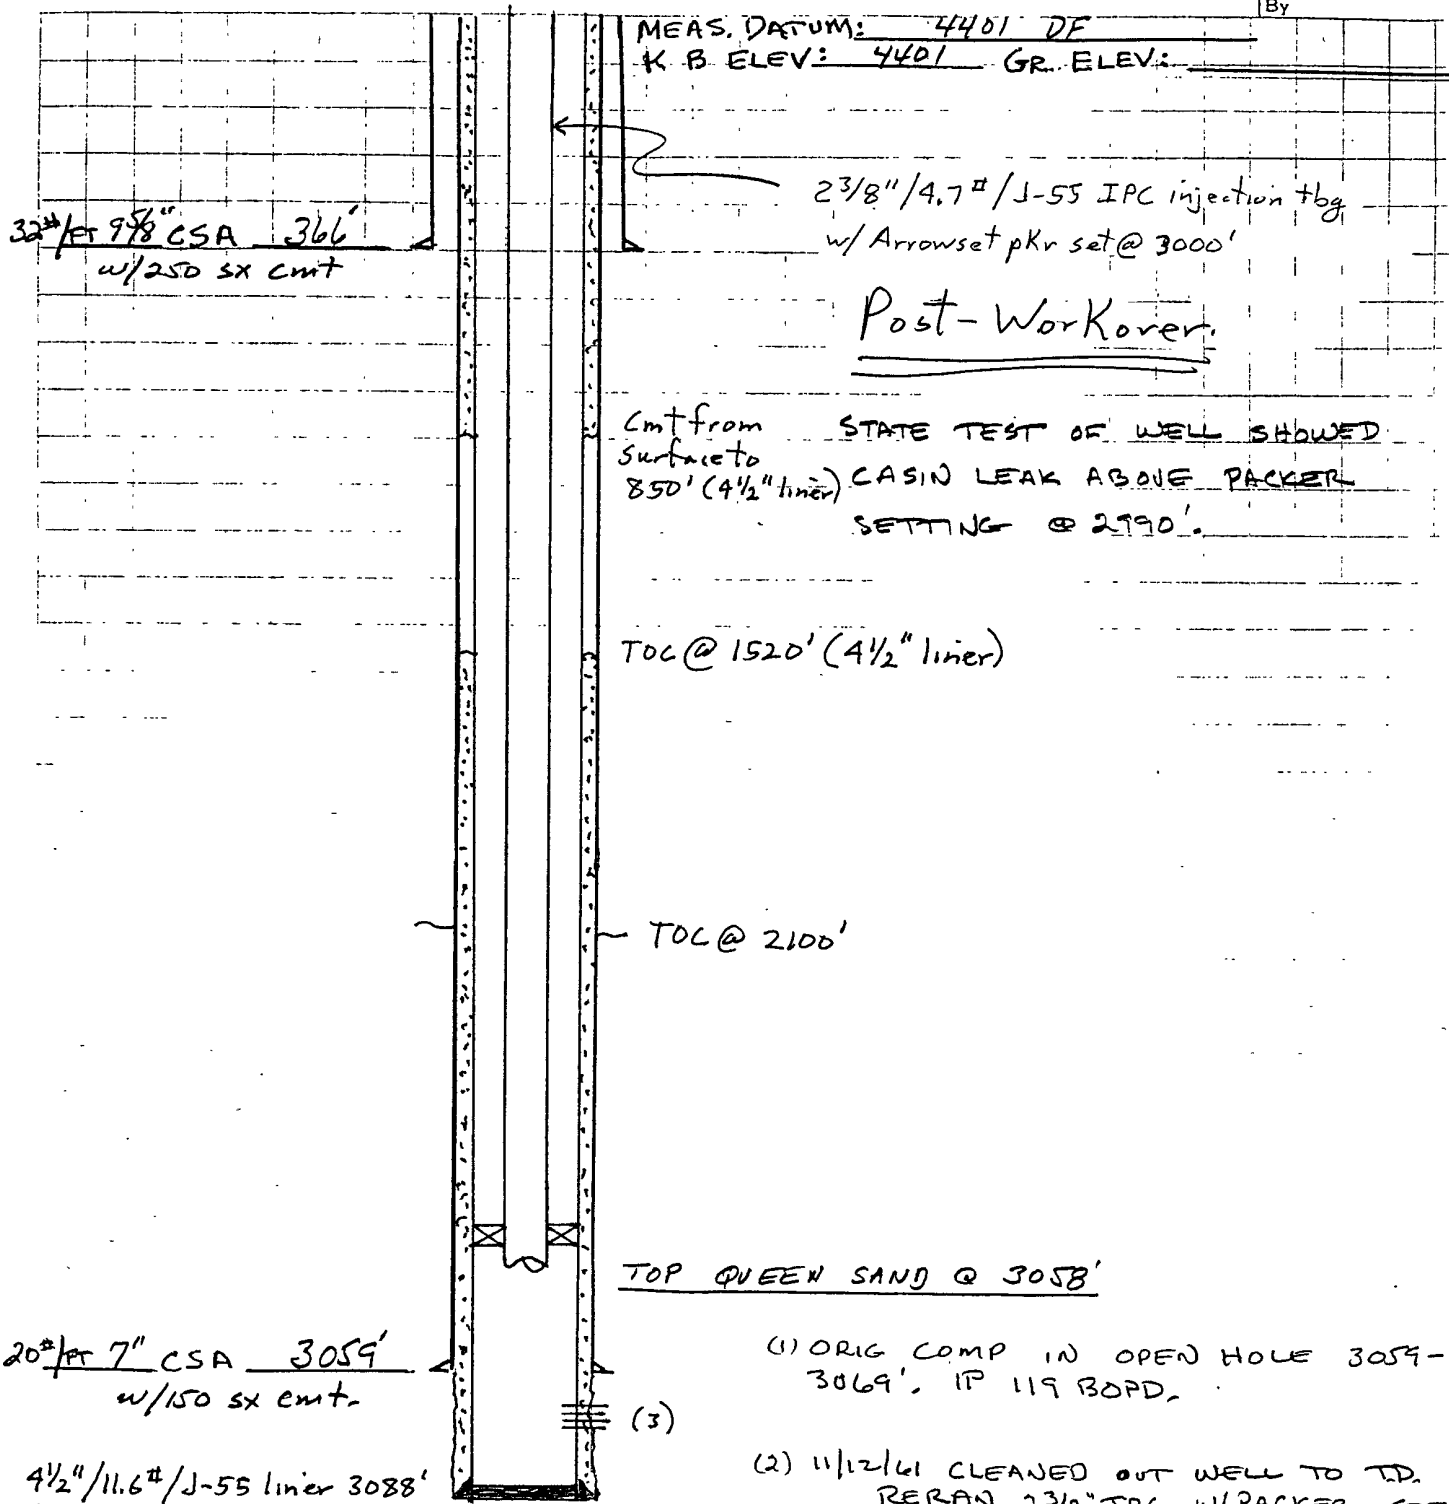 By
MEAS. DATUM: 4401 DF
K B ELEV: 4401 GR. ELEV:
2 3/8"/4.7#/J-55 IPC injection tbg
w/ Arrowset pkr set @ 3000'
32#/FT 9 5/8" CSA 366'
w/250 sx cmt
Post-Workover.
Cmt from
surface to
850' (4 1/2" liner)
STATE TEST OF WELL SHOWED
CASIN LEAK ABOVE PACKER
SETTING @ 2990'.
TOC @ 1520' (4 1/2" liner)
TOC @ 2100'
TOP QUEEN SAND @ 3058'
20#/FT 7" CSA 3059'
w/150 sx cmt.
(1) ORIG COMP IN OPEN HOLE 3059-
3069'. IP 119 BOPD.
(3)
4 1/2"/11.6#/J-55 liner 3088'
(2) 11/12/61 CLEANED OUT WELL TO T.D.
RERAN 2 3/8" TBG W/PACKER